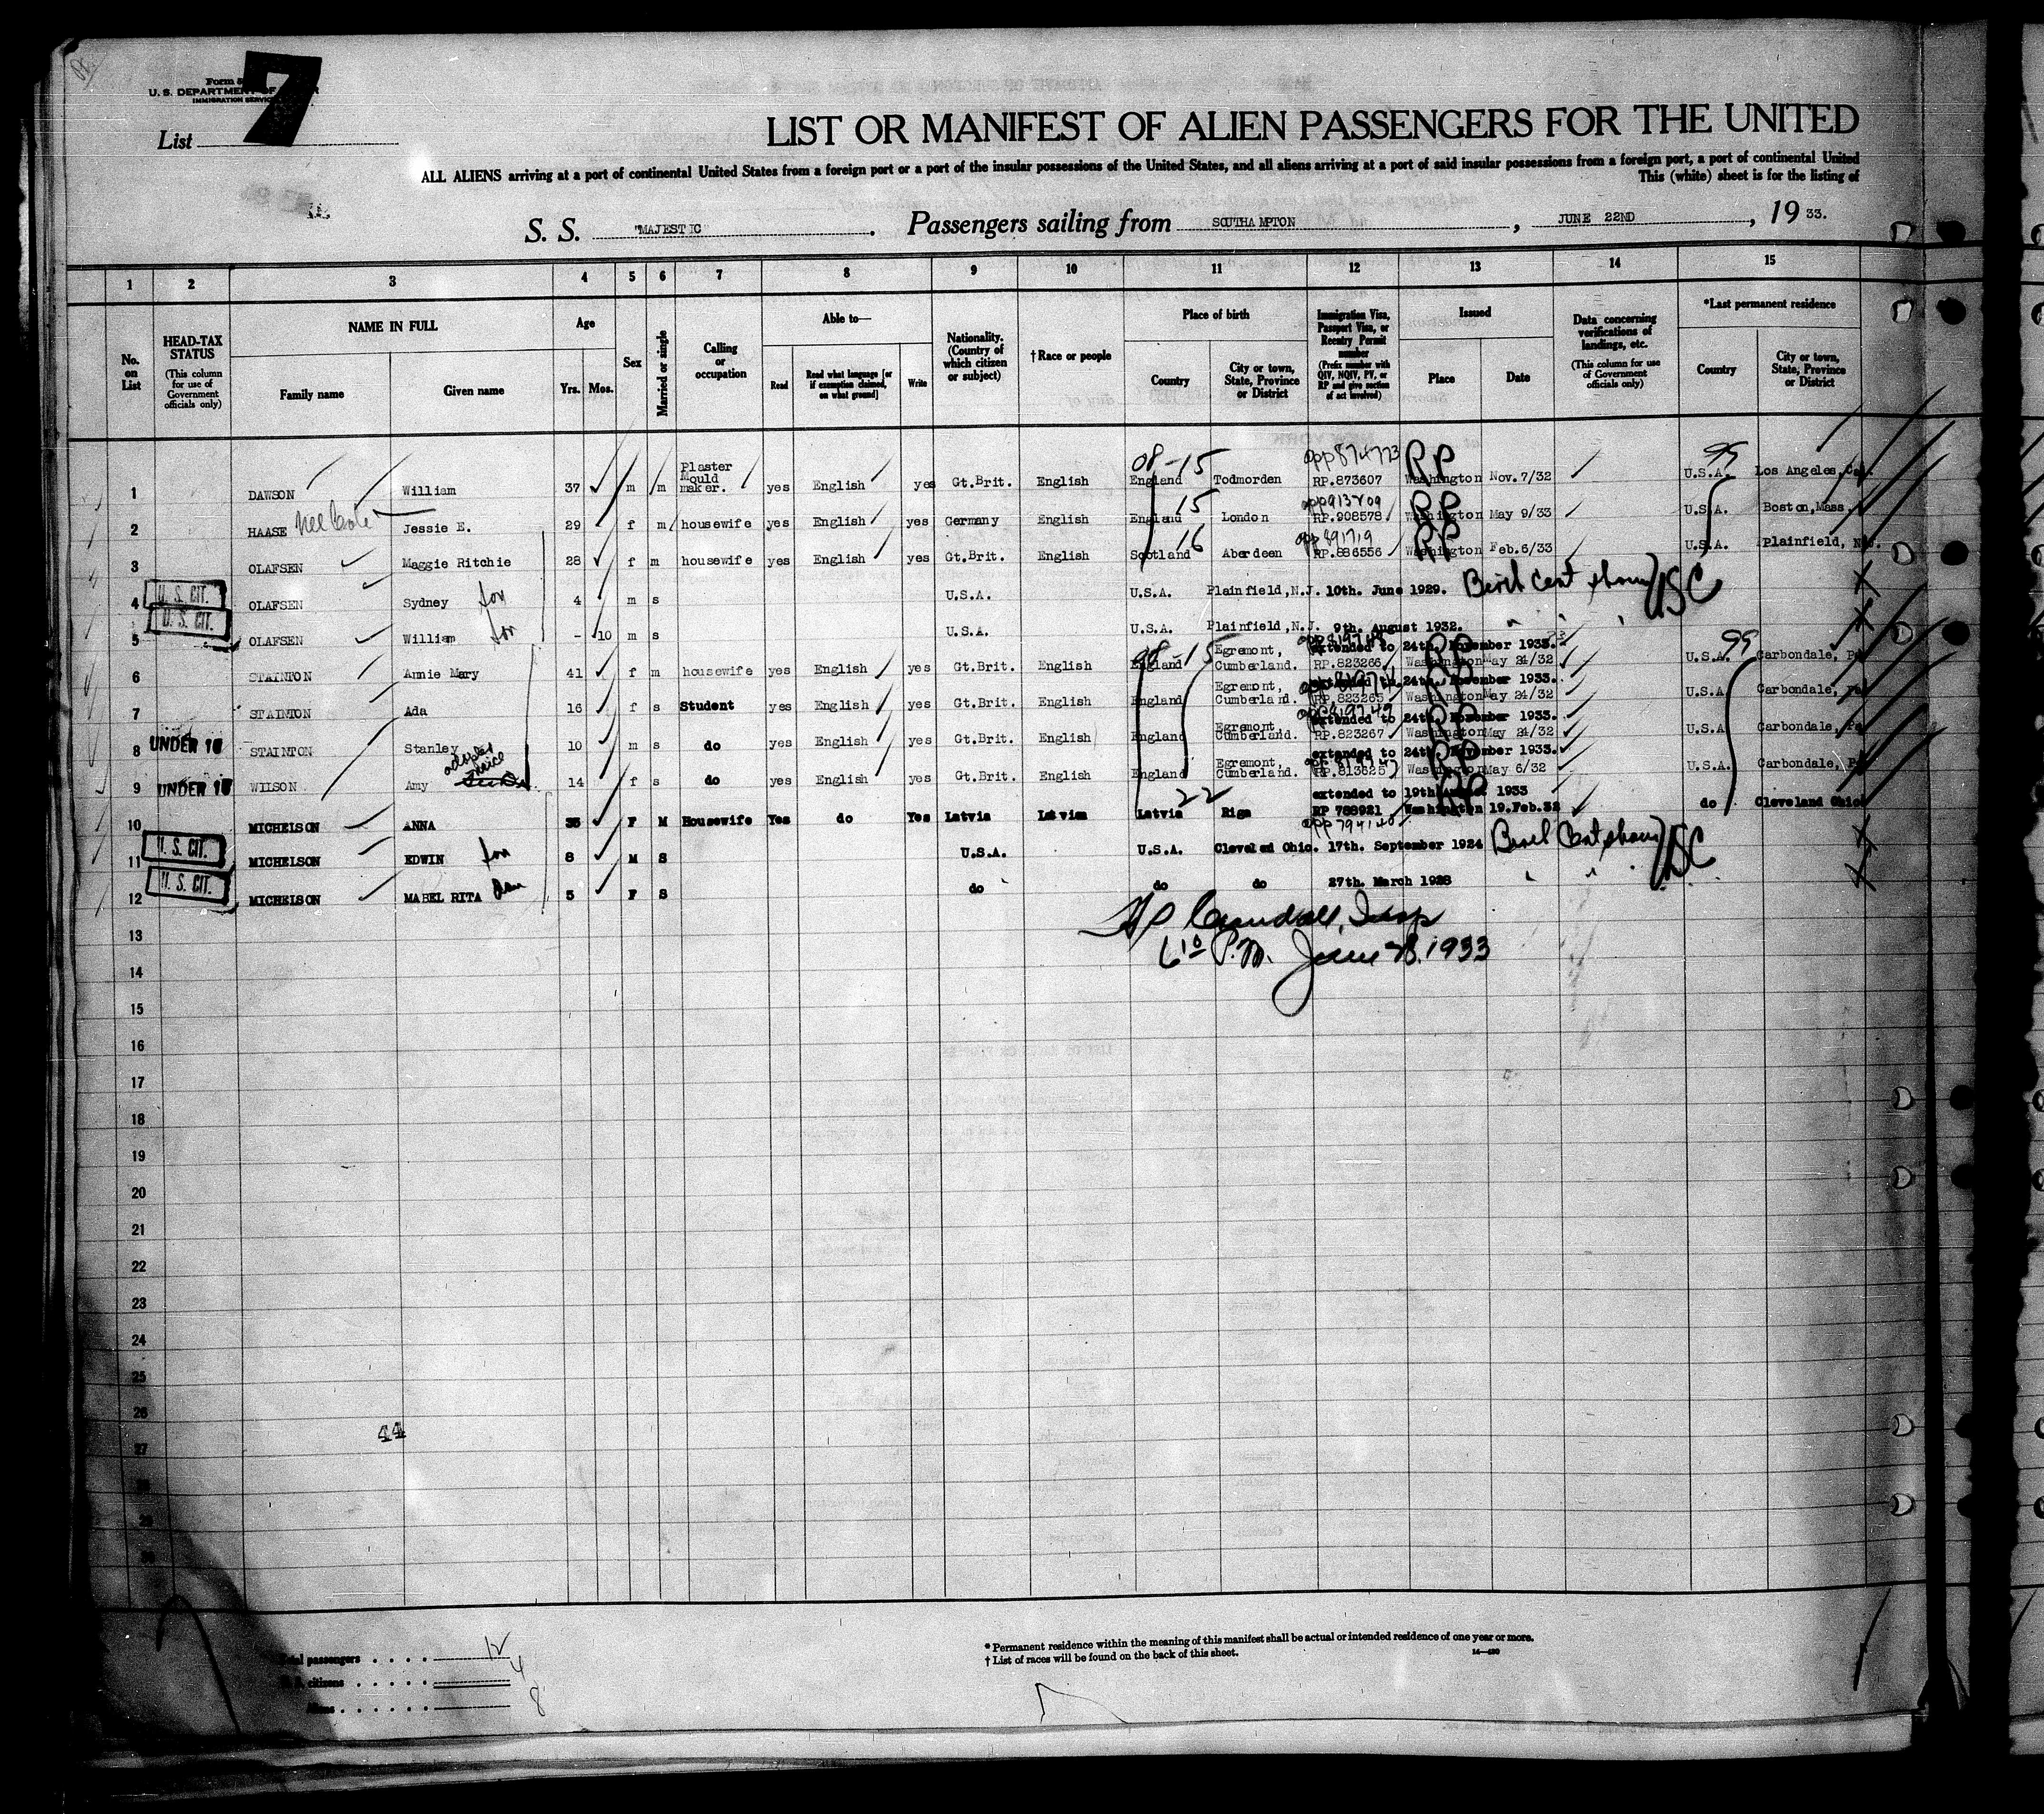 7
U. S. DEPARTMENT OF
IMMIGRATION SERVICE
List
LIST OR MANIFEST OF ALIEN PASSENGERS FOR THE UNITED
ALL ALIENS arriving at a port of continental United States from a foreign port or a port of the insular possessions of the United States, and all aliens arriving at a port of said insular possessions from a foreign port, a port of continental United
This (white) sheet is for the listing of
S. S. "MAJESTIC" . Passengers sailing from SOUTHAMPTON , JUNE 22ND , 19 33.
1 2 3 4 5 6 7 8 9 10 11 12 13 14 15
No. on List
HEAD-TAX STATUS (This column for use of Government officials only)
NAME IN FULL
Family name
Given name
Age
Yrs. Mos.
Sex
Married or single
Calling or occupation
Able to—
Read
Read what language [or if exemption claimed, on what ground]
Write
Nationality. (Country of which citizen or subject)
† Race or people
Place of birth
Country
City or town, State, Province or District
Immigration Visa, Passport Visa, or Reentry Permit number (Prefix number with QIV, NQIV, PV, or RP and give section of act involved)
Issued
Place
Date
Data concerning verifications of landings, etc. (This column for use of Government officials only)
*Last permanent residence
Country
City or town, State, Province or District
1 DAWSON William 37 m m Plaster Mould maker. yes English yes Gt.Brit. English 08-15 England Todmorden app 874773 RP.873607 RP Washington Nov.7/32 99 U.S.A. Los Angeles, Cal.
2 HAASE Jessie E. 29 f m housewife yes English yes Germany English 15 England London RP.908578 RP Washington May 9/33 U.S.A. Boston, Mass.
3 OLAFSEN Maggie Ritchie 28 f m housewife yes English yes Gt.Brit. English 16 Scotland Aberdeen app 891719 RP.886556 RP Washington Feb.6/33 U.S.A. Plainfield,
4 U. S. CIT. OLAFSEN Sydney 4 m s U.S.A. U.S.A. Plainfield,N.J. 10th. June 1929. Birth Cert shown USC
5 U. S. CIT. OLAFSEN William - 10 m s U.S.A. U.S.A. Plainfield,N.J. 9th. August 1932. " " "
extended to 24th. November 1933.
6 STAINTON Annie Mary 41 f m housewife yes English yes Gt.Brit. English 08-15 England Egremont, Cumberland. RP.823266 RP Washington May 24/32 99 U.S.A. Carbondale, Pa.
extended to 24th. November 1933.
7 STAINTON Ada 16 f s Student yes English yes Gt.Brit. English England Egremont, Cumberland. RP.823265 Washington May 24/32 U.S.A. Carbondale, Pa.
extended to 24th. November 1933.
8 UNDER 16 STAINTON Stanley 10 m s do yes English yes Gt.Brit. English England Egremont Cumberland. RP.823267 RP Washington May 24/32 U.S.A. Carbondale, Pa.
extended to 24th. November 1933.
9 UNDER 16 WILSON Amy 14 f s do yes English yes Gt.Brit. English England Egremont, Cumberland. RP.813625 RP Washington May 6/32 U.S.A. Carbondale, Pa.
extended to 19th August 1933
10 MICHELSON ANNA 35 F M Housewife Yes do Yes Latvia Latvian 22 Latvia Riga RP 788921 RP Washington 19.Feb.32 do Cleveland Ohio
11 U. S. CIT. MICHELSON EDWIN 8 M S U.S.A. U.S.A. Cleveland Ohio. 17th. September 1924 Birth Cert shown USC
12 U. S. CIT. MICHELSON MABEL RITA 5 F S do do do 27th. March 1928 " " "
Insp
6 10 P.M. June 28, 1933
13
14
15
16
17
18
19
20
21
22
23
24
25
26
44
27
28
29
30
* Permanent residence within the meaning of this manifest shall be actual or intended residence of one year or more.
† List of races will be found on the back of this sheet.
Total passengers . . . . 12
U. S. citizens . . . . . 4
Aliens . . . . . . 8